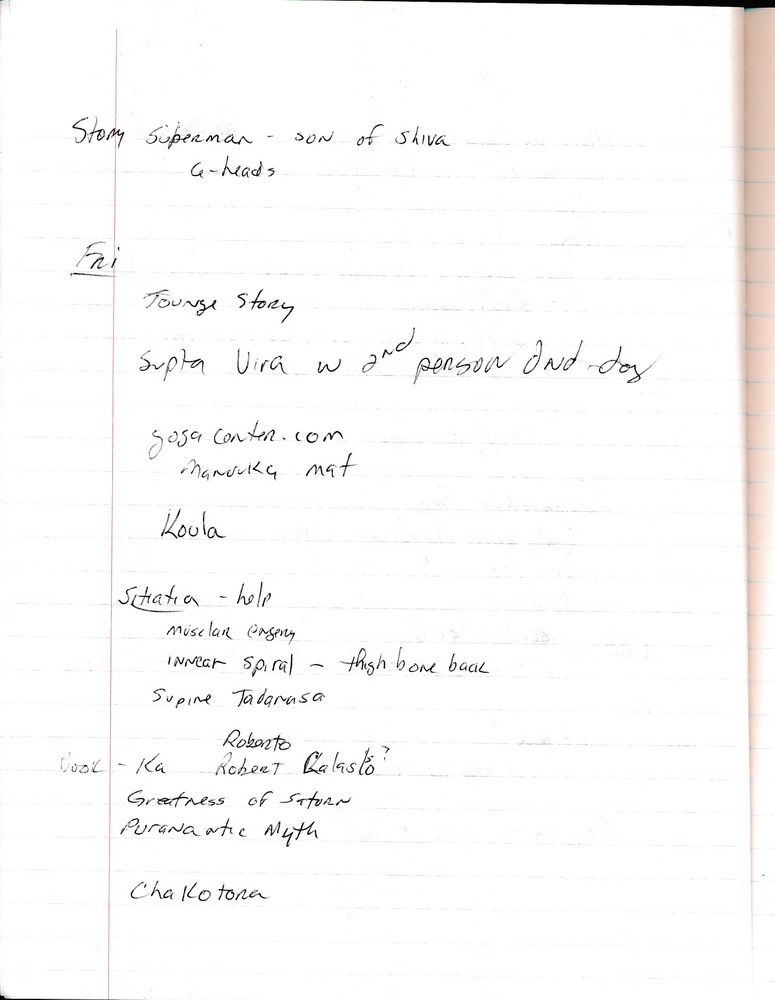 Story Superman - son of Shiva
6-heads
Fri
Tounge Story
Supta Vira w 2nd person 2nd-day
yoga center.com
Manduka mat
Koula
Sciatica - help
musclar engery
innear spiral - thigh bone back
Supine Tadanasa
Roberto
Book - Ka Robert Calasto?
Greatness of Saturn
Purana Myth
Chakotona